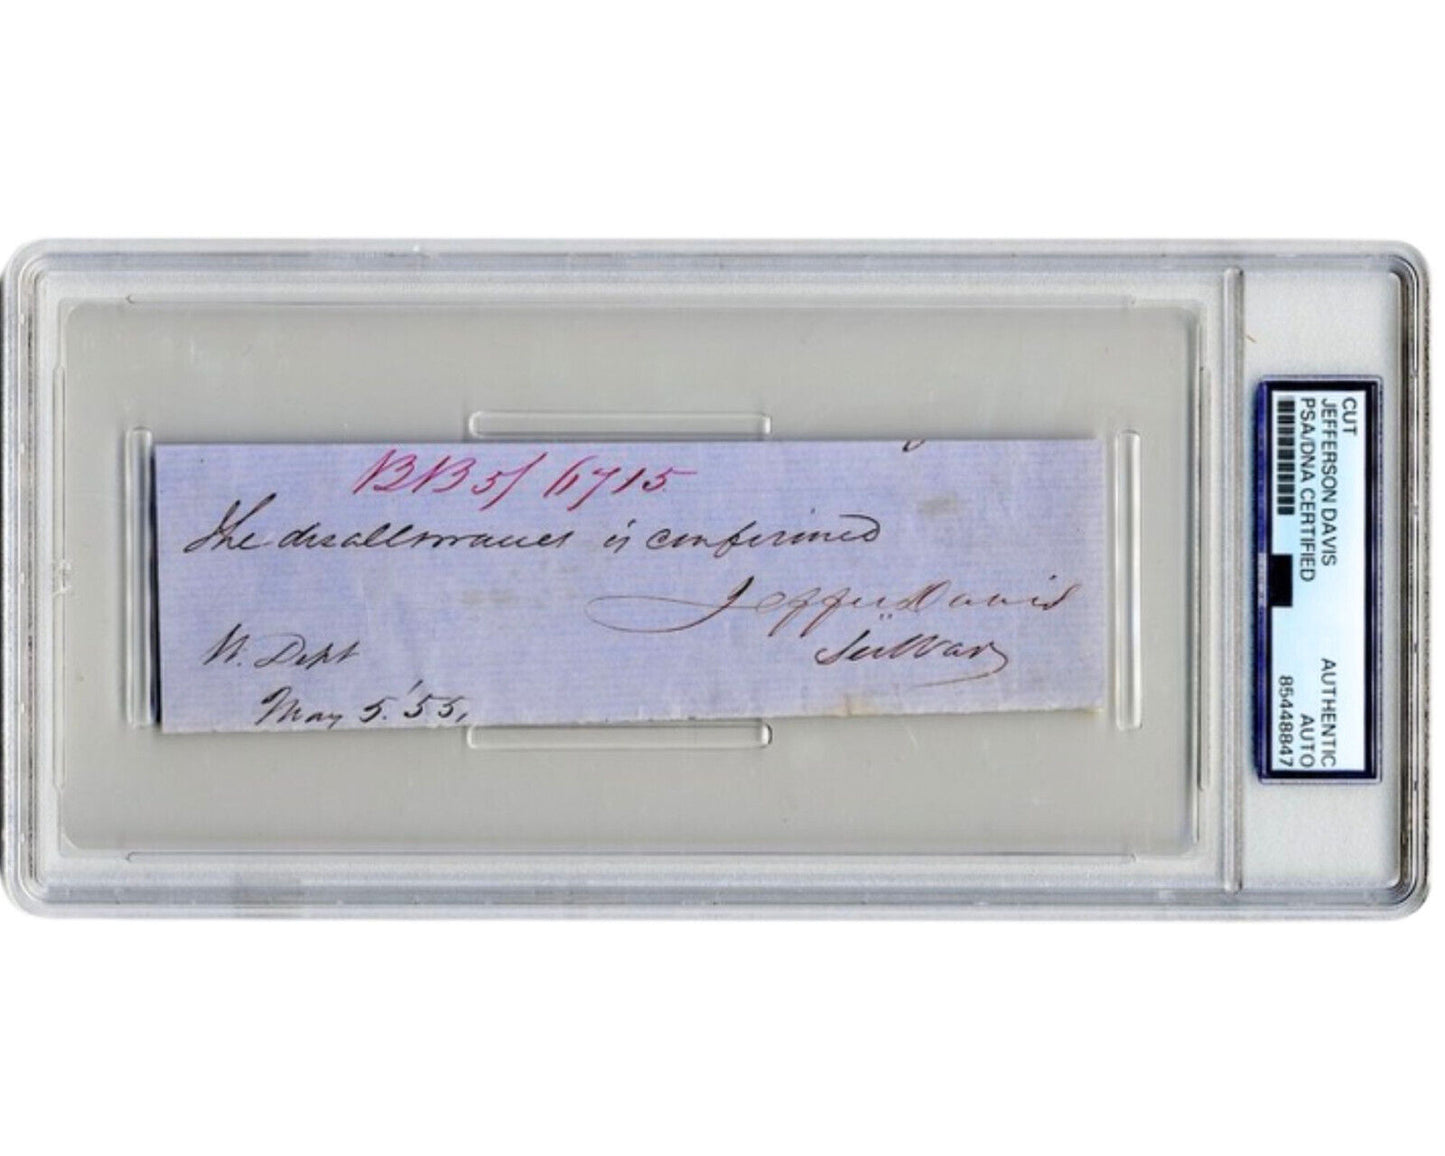 BB 51 6715
The disallowance is confirmed
Jeffer Davis
Sec War
W. Dept
May 5. '55,
CUT
JEFFERSON DAVIS
PSA/DNA CERTIFIED
AUTHENTIC
AUTO
85448847